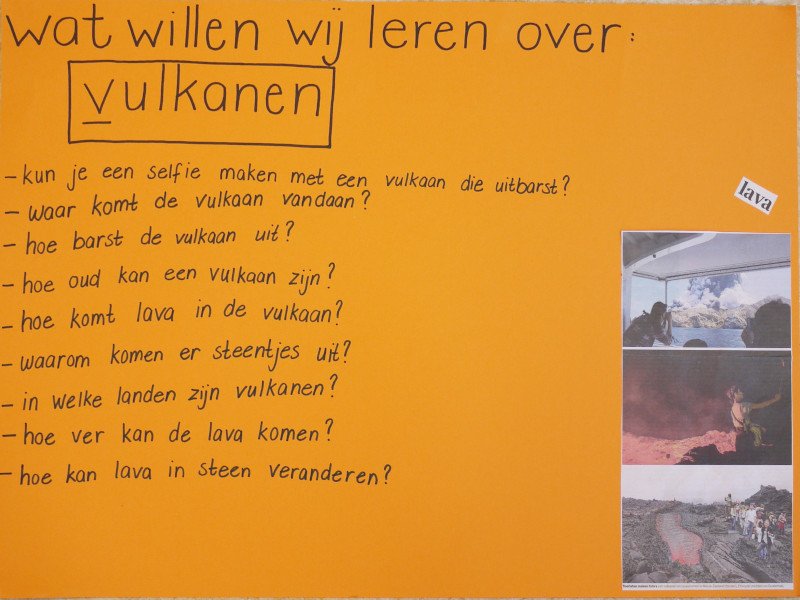 wat willen wij leren over:
vulkanen
- kun je een selfie maken met een vulkaan die uitbarst?
- waar komt de vulkaan vandaan?
- hoe barst de vulkaan uit?
- hoe oud kan een vulkaan zijn?
- hoe komt lava in de vulkaan?
- waarom komen er steentjes uit?
- in welke landen zijn vulkanen?
- hoe ver kan de lava komen?
- hoe kan lava in steen veranderen?
lava